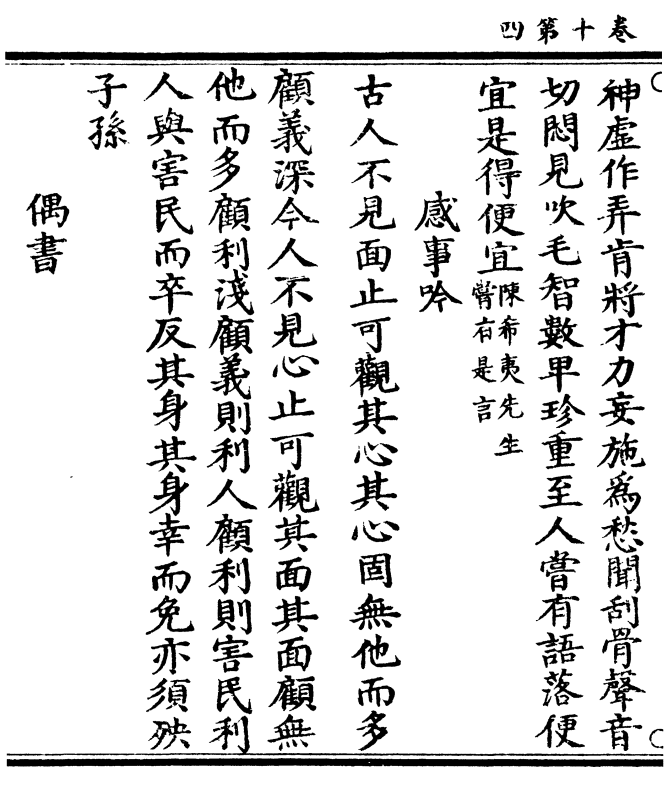 卷十第四
神虛作弄肯將才力妄施為愁聞刮骨聲音
切悶見吹毛智數甲珍重至人嘗有語落便
宜是得便宜陳希夷先生
嘗有是言
感事吟
古人不見面止可觀其心其心固無他而多
顧義深今人不見心止可觀其面其面顧無
他而多顧利淺顧義則利人顧利則害民利
人與害民而卒反其身其身幸而免亦須殃
子孫
偶書